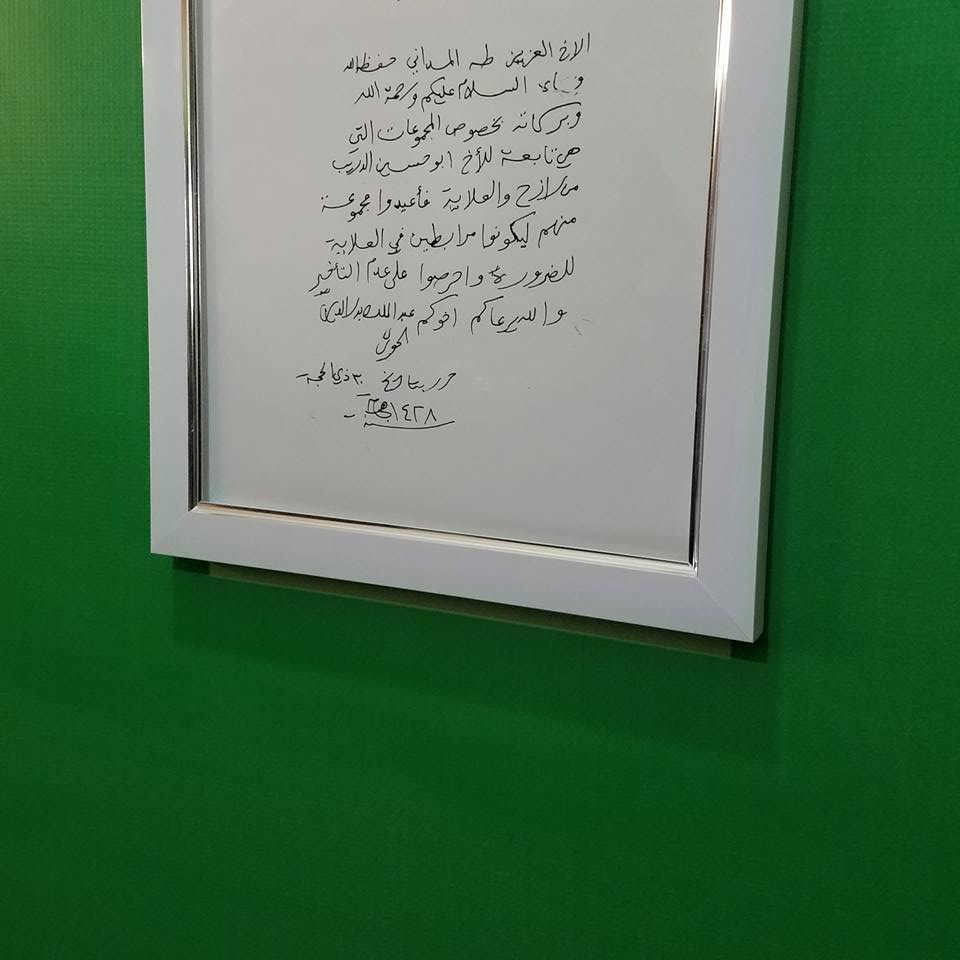 الاخ العزيز طه المداني حفظه الله
السلام عليكم ورحمة الله
وبركاته بخصوص المجموعات التي
هي تابعة للأخ ابو حسين الدريب
من رازح والعلابة فأعيدوا مجموعة
منهم ليكونوا مرابطين في العلابة
للضرورة واحرصوا على عدم التأخير
والله يرعاكم اخوكم عبدالملك بدرالدين
الحوثي
حرر بتاريخ ٣٠ ذي الحجة
سنة ١٤٢٨هـ